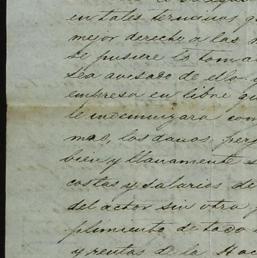 en tales terminos q
mejor derecho a las m
se pusiere lo tom
sea avisado de ello y
empresa en libre q
le inecmnizara com
mas, los danos, perj
bien y llanamente s
costas y salarios de
del actor sin otra p
plimiento de todo
y rentas de la Hac